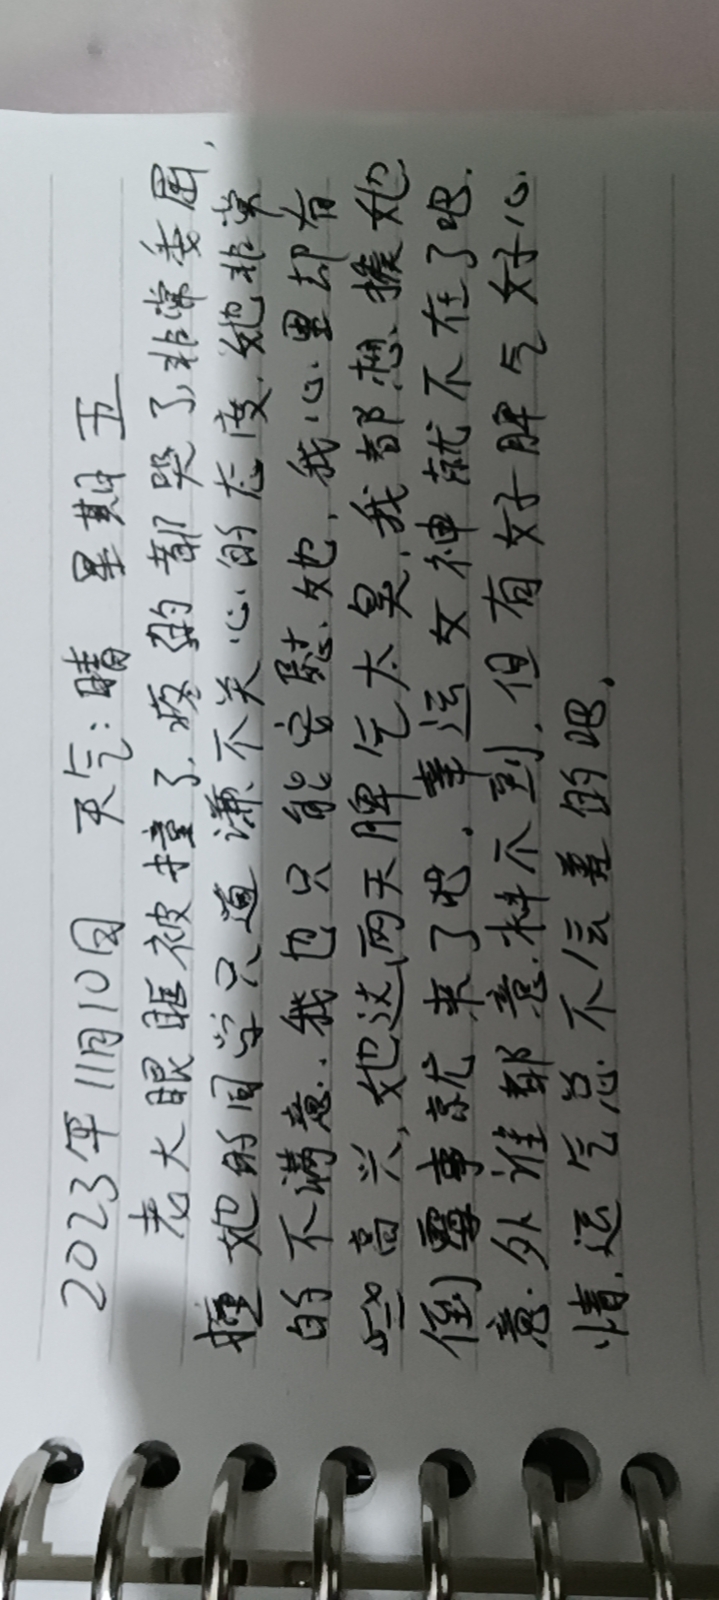 2023年11月10日 天气:晴 星期五
老大眼眶被撞了,疼的都哭了,非常委屈,
撞她的同学只道谦不关心的态度,她非常
的不满意.我也只能安慰她,我心里却有
些高兴,她这两天脾气太臭,我都想揍她
倒霉事就来了吧.幸运女神就不在了吧.
意外谁都意料不到,但有好脾气好心
情,运气总不会差的吧.